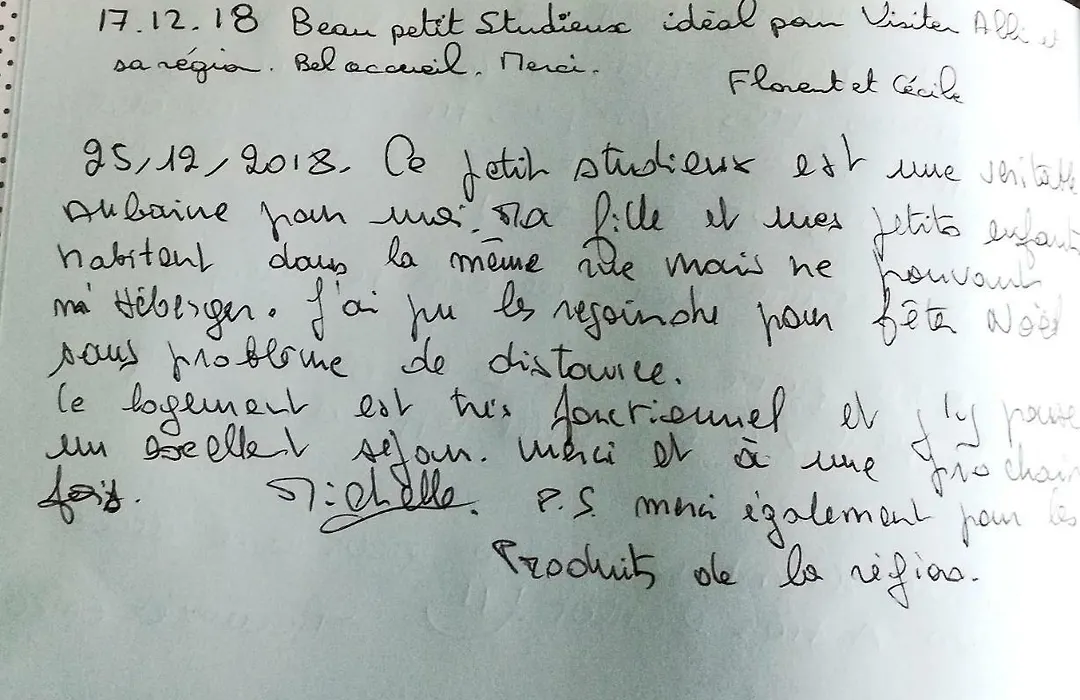 17.12.18 Beau petit Studieux idéal pour Visiter Albi et
sa région. Bel accueil. Merci.
Florent et Cécile
25/12/2018. Ce petit studieux est une véritable
aubaine pour moi. Ma fille et mes petits enfants
habitent dans la même rue mais ne pouvant
m'Héberger. J'ai pu les rejoindre pour fêter Noël
sans problème de distance.
Ce logement est très fonctionnel et j'y passe
un excellent séjour. Merci et à une prochaine
fois. Michelle. P.S. merci également pour les
Produits de la région.